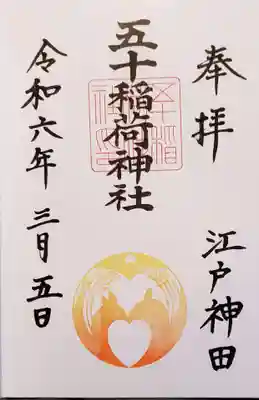 奉拝
江戸神田
五十稲荷神社
令和六年三月五日